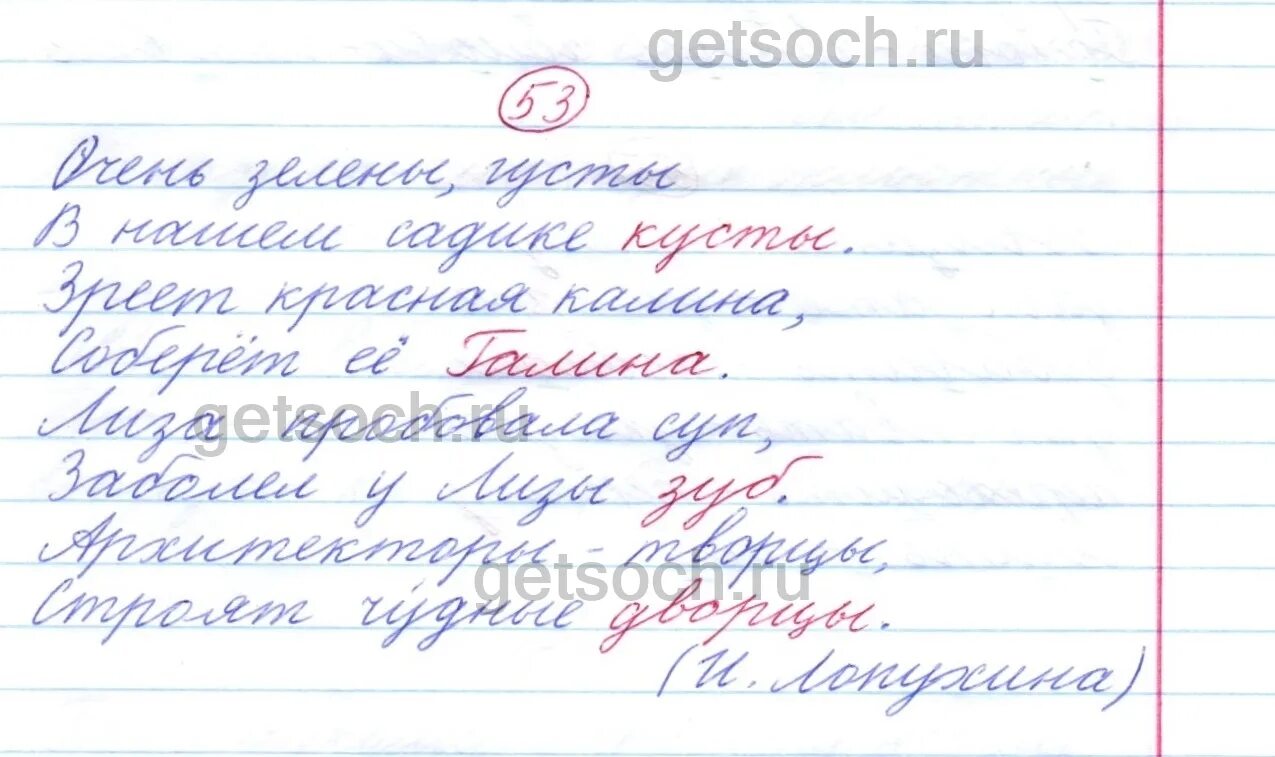 getsoch.ru
53
Очень зелены, густы
В нашем садике кусты.
Зреет красная калина,
Соберёт её Галина.
Лиза пробовала суп,
getsoch.ru
Заболел у Лизы зуб.
Архитекторы - творцы,
getsoch.ru
Строят чу́дные дворцы.
(И. Лопухина)